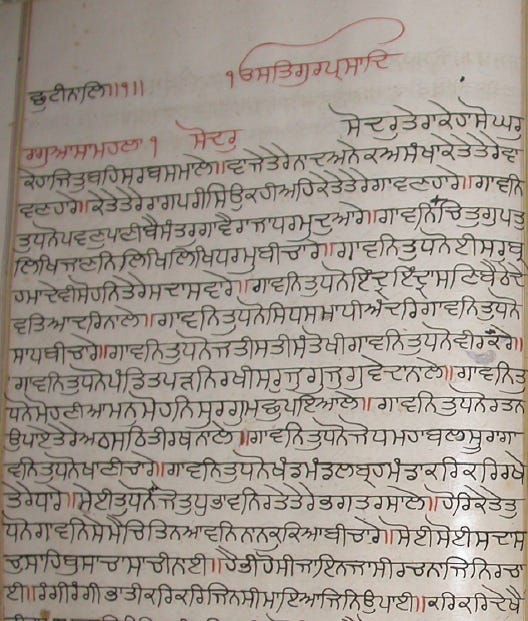 ੧ਓਸਤਿਗੁਰਪ੍ਰਸਾਦਿ
ਛੁਟੀਨਾਲਿ॥੧॥
ਸੋਦਰੁਤੇਰਾਕੇਹਾਸੋਘਰੁ
ਰਾਗੁਆਸਾਮਹਲਾ੧ ਸੋਦਰੁ
ਕੇਹਾਜਿਤੁਬਹਿਸਰਬਸਮਾਲੇ॥ਵਾਜੇਤੇਰੈਨਾਦਅਨੇਕਅਸੰਖਾਕੇਤੇਤੇਰੇਵਾ
ਵਣਹਾਰੇ॥ਕੇਤੇਤੇਰੇਰਾਗਪਰੀਸਿਉਕਹੀਅਹਿਕੇਤੇਤੇਰੇਗਾਵਣਹਾਰੇ॥ਗਾਵਨਿ
ਤੁਧਨੋਪਵਣੁਪਾਣੀਬੈਸੰਤਰੁਗਾਵੈਰਾਜਾਧਰਮੁਦੁਆਰੇ॥ਗਾਵਨਿਚਿਤੁਗੁਪਤੁ
ਲਿਖਿਜਾਣਨਿਲਿਖਿਲਿਖਿਧਰਮੁਬੀਚਾਰੇ॥ਗਾਵਨਿਤੁਧਨੋਈਸਰੁਬ੍ਰ
ਹਮਾਦੇਵੀਸੋਹਨਿਤੇਰੇਸਦਾਸਵਾਰੇ॥ਗਾਵਨਿਤੁਧਨੋਇੰਦ੍ਰਇੰਦ੍ਰਾਸਣਿਬੈਠੇਦੇ
ਵਤਿਆਦਰਿਨਾਲੇ॥ਗਾਵਨਿਤੁਧਨੋਸਿਧਸਮਾਧੀਅੰਦਰਿਗਾਵਨਿਤੁਧਨੋ
ਸਾਧਬੀਚਾਰੇ॥ਗਾਵਨਿਤੁਧਨੋਜਤੀਸਤੀਸੰਤੋਖੀਗਾਵਨਿਤੁਧਨੋਵੀਰਕਰਾਰੇ॥
ਗਾਵਨਿਤੁਧਨੋਪੰਡਿਤਪੜਨਿਰਖੀਸਰੁਜੁਗੁਜੁਗੁਵੇਦਾਨਾਲੇ॥ਗਾਵਨਿਤੁ
ਧਨੋਮੋਹਣੀਆਮਨੁਮੋਹਨਿਸੁਰਗੁਮਛੁਪਇਆਲੇ॥ਗਾਵਨਿਤੁਧਨੋਰਤਨ
ਉਪਾਏਤੇਰੇਅਠਸਠਿਤੀਰਥਨਾਲੇ॥ਗਾਵਨਿਤੁਧਨੋਜੋਧਮਹਾਬਲਸੂਰਾਗਾ
ਵਨਿਤੁਧਨੋਖਾਣੀਚਾਰੇ॥ਗਾਵਨਿਤੁਧਨੋਖੰਡਮੰਡਲਬ੍ਰਹਮੰਡਾਕਰਿਕਰਿਰਖੇ
ਤੇਰੇਧਾਰੇ॥ਸੇਈਤੁਧਨੋਜੋਤੁਧੁਭਾਵਨਿਰਤੇਤੇਰੇਭਗਤਰਸਾਲੇ॥ਹੋਰਿਕੇਤੇਤੁ
ਧਨੋਗਾਵਨਿਸੇਮੈਚਿਤਿਨਆਵਨਿਨਾਨਕੁਕਿਆਬੀਚਾਰੇ॥ਸੋਈਸੋਈਸਦਾਸ
ਚੁਸਾਹਿਬੁਸਾਚਾਸਾਚੀਨਾਈ॥ਹੈਭੀਹੋਸੀਜਾਇਨਜਾਸੀਰਚਨਾਜਿਨਿਰਚਾ
ਈ॥ਰੰਗੀਰੰਗੀਭਾਤੀਕਰਿਕਰਿਜਿਨਸੀਮਾਇਆਜਿਨਿਉਪਾਈ॥ਕਰਿਕਰਿਦੇਖੈ